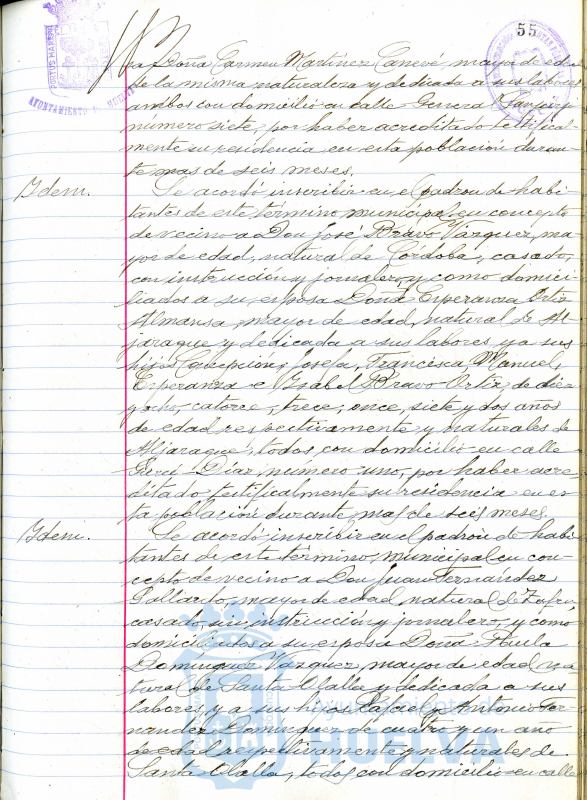 55
PORTUS MARIS
AYUNTAMIENTO
ra Doña Carmen Martínez Canevé, mayor de edad
de la misma naturaleza y dedicada a sus labores
ambos con domicilio en calle General
número siete, por haber acreditado testifical-
mente su residencia en esta población duran-
te mas de seis meses.
Idem.
Se acordó inscribir en el padrón de habi-
tantes de este término municipal en concepto
de vecino a Don José Bravo Vázquez, ma-
yor de edad, natural de Córdoba, casado,
con instrucción y jornalero, y como domici-
liados a su esposa Doña Esperanza Ortiz
Almansa, mayor de edad, natural de Al-
jaraque y dedicada a sus labores y a sus
hijos Concepción, Josefa, Francisca, Manuel,
Esperanza e Isabel Bravo Ortiz, de diez
y ocho, catorce, trece, once, siete y dos años
de edad respectivamente y naturales de
Aljaraque, todos con domicilio en calle
Garci Díaz, número uno, por haber acre-
ditado testificalmente su residencia en es-
ta población durante mas de seis meses.
Idem.
Se acordó inscribir en el padrón de habi-
tantes de este término municipal en con-
cepto de vecino a Don Juan Fernández
Gallardo, mayor de edad, natural de Zafra,
casado, sin instrucción y jornalero, y como
domiciliados a su esposa Doña Paula
Dominguez Vazquez, mayor de edad, na-
tural de Santa Olalla y dedicada a sus
labores y a sus hijos Rafael y Antonio Fer-
nandez Dominguez de cuatro y un año
de edad respectivamente y naturales de
Santa Olalla, todos con domicilio en calle
Ayuntamiento de
HUELVA